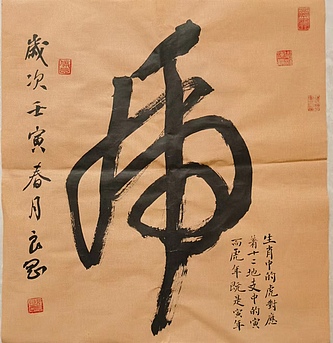 虎
生肖中的虎對應
著十二地支中的寅
而虎年既是寅年
歲次壬寅春月